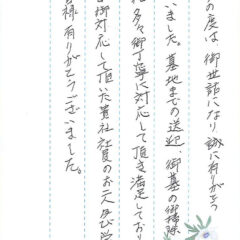 の度は御世話になり誠に有りがとう
いました。墓地までの送迎、御墓の御掃除
々御丁寧に対応して頂き満足しており
御対応して頂いた貴社社員のお二人及び
様有りがとうございました。